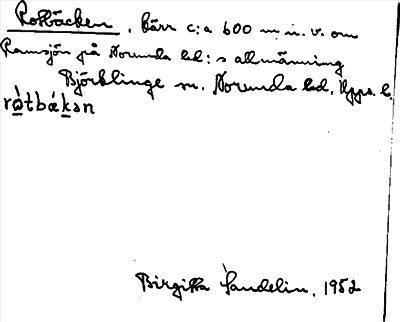 Rotbäcken, kärr c:a 600 m n. v. om
Ramsjön på Norunda hd:s allmänning
Björklinge sn. Norunda hd, Upps. l.
rò̱tbák̠ən
Birgitta Sandelin, 1952